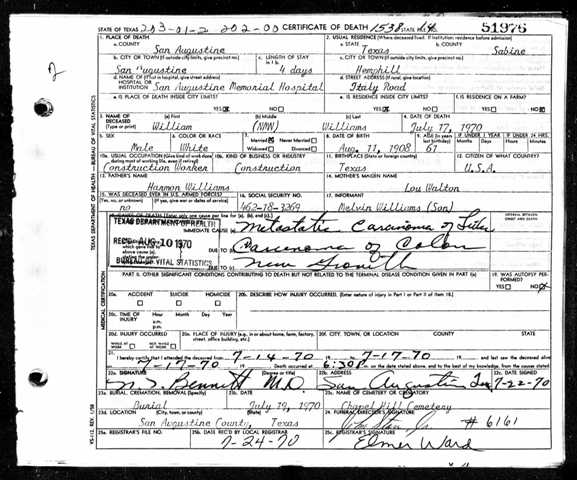 STATE OF TEXAS 203-01-2 202-00 CERTIFICATE OF DEATH 1538 51976
1. PLACE OF DEATH 2. USUAL RESIDENCE (Where deceased lived. If institution: residence before admission)
a. COUNTY San Augustine a. STATE Texas b. COUNTY Sabine
b. CITY OR TOWN (If outside city limits, give precinct no.) c. LENGTH OF STAY c. CITY OR TOWN (If outside city limits, give precinct no.)
San Augustine 4 days Hemphill
d. NAME OF (If not in hospital, give street address) d. STREET ADDRESS (If rural, give location)
HOSPITAL OR INSTITUTION San Augustine Memorial Hospital Italy Road
e. IS PLACE OF DEATH INSIDE CITY LIMITS? e. IS RESIDENCE INSIDE CITY LIMITS? f. IS RESIDENCE ON A FARM?
YES NO YES NO YES NO
3. NAME OF DECEASED (Type or print) (a) First (b) Middle (c) Last 4. DATE OF DEATH
William (NMN) Williams July 17, 1970
5. SEX 6. COLOR OR RACE 7. Married Never Married 8. DATE OF BIRTH 9. AGE IF UNDER 1 YEAR IF UNDER 24 HRS.
Male White Widowed Divorced Aug. 11, 1908 61 Months Days Hours Min.
10a. USUAL OCCUPATION (Give kind of work done during most of working life, even if retired) 10b. KIND OF BUSINESS OR INDUSTRY 11. BIRTHPLACE (State or foreign country) 12. CITIZEN OF WHAT COUNTRY?
Construction Worker Construction Texas U.S.A.
13. FATHER'S NAME 14. MOTHER'S MAIDEN NAME
Harmon Williams Lou Walton
15. WAS DECEASED EVER IN U.S. ARMED FORCES? 16. SOCIAL SECURITY NO. 17. INFORMANT
no 462-18-3269 Melvin Williams (Son)
TEXAS DEPARTMENT OF HEALTH
REC'D AUG 10 1970
BUREAU OF VITAL STATISTICS
IMMEDIATE CAUSE (a) Metastatic Carcinoma of Liver
DUE TO (b) Carcinoma of Colon
DUE TO (c) New Growth
PART II. OTHER SIGNIFICANT CONDITIONS CONTRIBUTING TO DEATH BUT NOT RELATED TO THE TERMINAL DISEASE CONDITION GIVEN IN PART I(a) 19. WAS AUTOPSY PERFORMED?
YES NO
20a. ACCIDENT SUICIDE HOMICIDE 20b. DESCRIBE HOW INJURY OCCURRED. (Enter nature of injury in Part I or Part II of item 18.)
20c. TIME OF INJURY Hour Month Day Year
20d. INJURY OCCURRED 20e. PLACE OF INJURY (e.g. in or about home, farm, factory, street, office building, etc.) 20f. CITY, TOWN, OR LOCATION COUNTY STATE
WHILE AT WORK NOT WHILE AT WORK
21. I hereby certify that I attended the deceased from 7-14-70 to 7-17-70 and last saw the deceased alive
7-17-70 Death occurred at 6:30 P m. on the date stated above, and to the best of my knowledge, from the causes stated
22a. SIGNATURE (Degree or title) 22b. ADDRESS 22c. DATE SIGNED
Bennett MD San Augustine Tex 7-22-70
23a. BURIAL, CREMATION, REMOVAL (Specify) 23b. DATE 23c. NAME OF CEMETERY OR CREMATORY
Burial July 19, 1970 Chapel Hill Cemetery
23d. LOCATION (City, town, or county) (State) 24. FUNERAL DIRECTOR'S SIGNATURE
San Augustine County, Texas # 6161
25a. REGISTRAR'S FILE NO. 25b. DATE REC'D BY LOCAL REGISTRAR 25c. REGISTRAR'S SIGNATURE
7-24-70 Elmer Ward
TEXAS DEPARTMENT OF HEALTH — BUREAU OF VITAL STATISTICS
MEDICAL CERTIFICATION